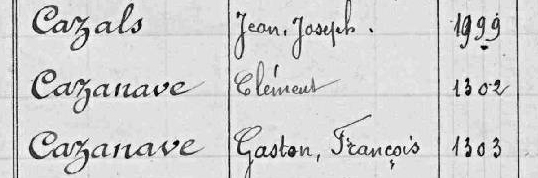 Cazals Jean, Joseph. 1999
Cazanave Clément 1302
Cazanave Gaston, François 1303